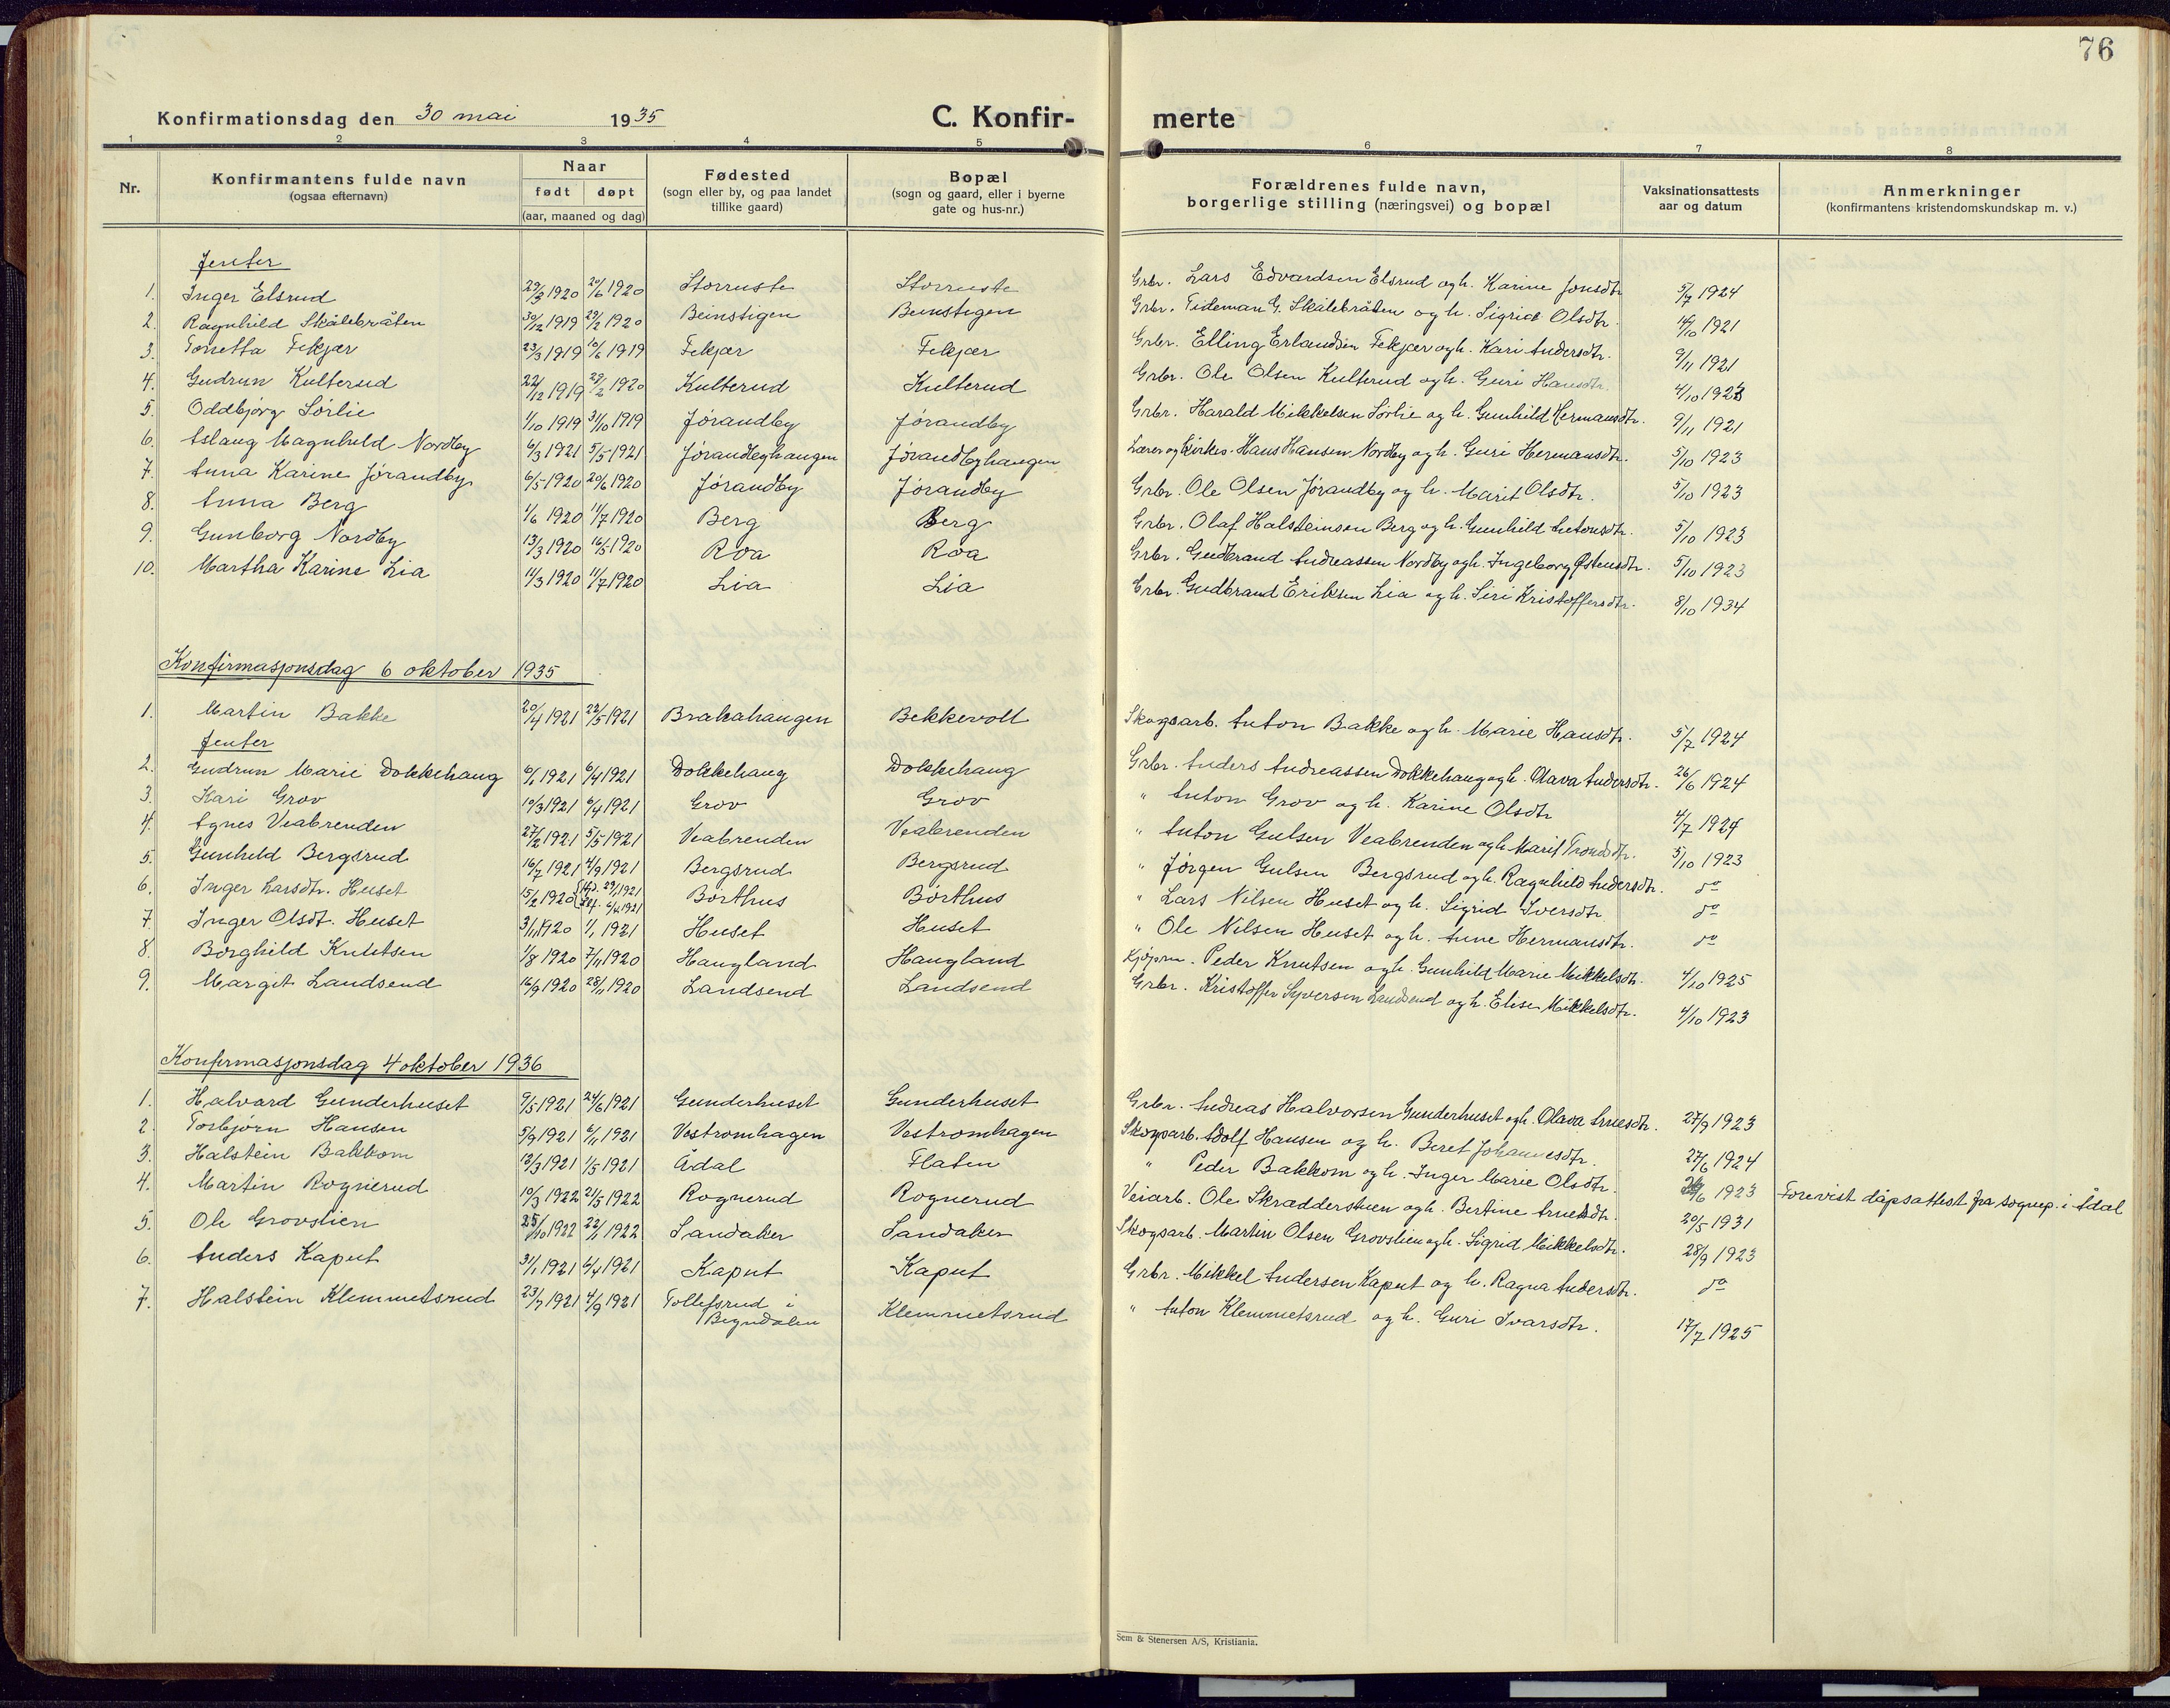 76
Konfirmationsdag den 30 mai 1935 C. Konfir- merte
1 2 3 4 5 6 7 8
Nr. Konfirmantens fulde navn (ogsaa efternavn) Naar født døpt (aar, maaned og dag) Fødested (sogn eller by, og paa landet tillike gaard) Bopæl (sogn og gaard, eller i byerne gate og hus-nr.) Forældrenes fulde navn, borgerlige stilling (næringsvei) og bopæl Vaksinationsattests aar og datum Anmerkninger (konfirmantens kristendomskundskap m. v.)
Jenter
1. Inger Elsrud 29/3 1920 20/6 1920 Storruste Storruste Grbr. Lars Edvardsen Elsrud og h. Karine Jonsdtr 5/7 1924
2. Ragnhild Skålebråten 30/12 1919 29/2 1920 Beinstigen Beinstigen Grbr. Tideman G. Skålebråten og h. Sigrid Olsdtr. 14/10 1921
3. Tonetta Fekjær 23/3 1919 10/6 1919 Fekjær Fekjær Grbr. Elling Erlandsen Fekjær og h. Kari Andersdtr. 9/11 1921
4. Gudrun Kulterud 22/12 1919 29/2 1920 Kulterud Kulterud Grbr. Ole Olsen Kulterud og h. Guri Hansdtr. 4/10 1923
5. Oddbjørg Sørlie 1/10 1919 31/10 1919 Jørandby Jørandby Grbr. Harald Mikkelsen Sørlie og h. Gunhild Hermansdtr. 9/11 1921
6. Aslaug Magnhild Nordby 6/3 1921 5/5 1921 Jørandbyhaugen Jørandbyhaugen Lærer og kirkes. Hans Hansen Nordby og h. Guri Hermansdtr. 5/10 1923
7. Anna Karine Jørandby 6/5 1920 20/6 1920 Jørandby Jørandby Grbr. Ole Olsen Jørandby og h. Marit Olsdtr. 5/10 1923
8. Anna Berg 1/6 1920 11/7 1920 Berg Berg Grbr. Olaf Halsteinsen Berg og h. Gunhild Antonsdtr. 5/10 1923
9. Gunborg Nordby 13/3 1920 16/5 1920 Roa Roa Grbr. Gudbrand Andreassen Nordby og h. Ingeborg Østensdtr. 5/10 1923
10. Martha Karine Lia 11/3 1920 11/7 1920 Lia Lia Grbr. Gudbrand Eriksen Lia og h. Siri Kristoffersdtr. 8/10 1934
Konfirmasjonsdag 6 oktober 1935
1. Martin Bakke 20/4 1921 22/5 1921 Brakahaugen Bekkevoll Skogsarb. Anton Bakke og h. Marie Hansdtr. 5/7 1924
Jenter
2. Gudrun Marie Dokkehaug 6/1 1921 6/4 1921 Dokkehaug Dokkehaug Grbr. Anders Andreassen Dokkehaug og h. Olava Andersdtr. 26/6 1924
3. Kari Grov 10/3 1921 6/4 1921 Grov Grov " Anton Grov og h. Karine Olsdtr 4/7 1924
4. Agnes Veabrenden 27/2 1921 5/5 1921 Veabrenden Veabrenden " Anton Gulsen Veabrenden og h. Marit Trondsdtr. 5/10 1923
5. Gunhild Bergsrud 16/7 1921 4/9 1921 Bergsrud Bergsrud " Jørgen Gulsen Bergsrud og h. Ragnhild Andersdtr. do
6. Inger Larsdtr. Huset 15/2 1920 29/1 1921 6/4 1921 Børthus Børthus " Lars Nilsen Huset og h. Sigrid Iversdtr do
7. Inger Olsdt. Huset 3/11 1920 1/1 1921 Huset Huset " Ole Nilsen Huset og h. Anne Hermansdtr. do
8. Borghild Knutsen 1/8 1920 7/11 1920 Haugland Haugland Kjøpm. Peder Knutsen og h. Gunhild Marie Mikkelsdtr. 4/10 1925
9. Margit Landsend 16/9 1920 28/11 1920 Landsend Landsend Grbr. Kristoffer Syversen Landsend og h. Elise Mikkelsdtr. 4/10 1923
Konfirmasjonsdag 4 oktober 1936
1. Halvard Gunderhuset 9/5 1921 24/6 1921 Gunderhuset Gunderhuset Grbr. Andreas Halvorsen Gunderhuset og h. Olava Arnesdtr. 27/9 1923
2. Torbjørn Hansen 5/9 1921 6/11 1921 Vestromhagen Vestromhagen Skogsarb. Adolf Hansen og h. Beret Johannesdtr. 27/6 1924
3. Halstein Bakkom 12/3 1921 1/5 1921 Ådal Flaten " Peder Bakkom og h. Inger Marie Olsdtr. /6 1923 Forevist dåpsattest fra sognep. i Ådal
4. Martin Rognerud 10/3 1922 21/5 1922 Rognerud Rognerud Veiarb. Ole Skradderstuen og h. Bertine Arnesdtr. 20/5 1931
5. Ole Grovslien 25/10 1922 22/11 1922 Sandaker Sandaker Skogsarb. Martin Olsen Grovslien og h. Sigrid Mikkelsdtr. 28/9 1923
6. Anders Kaput 31/1 1921 6/4 1921 Kaput Kaput Grbr. Mikkel Andersen Kaput og h. Ragna Andersdtr. do
7. Halstein Klemmetsrud 23/7 1921 4/9 1921 Tollefsrud i Begndalen Klemmetsrud " Anton Klemmetsrud og h. Guri Ivarsdtr. 17/7 1925
Sem & Stenersen A/S, Kristiania.